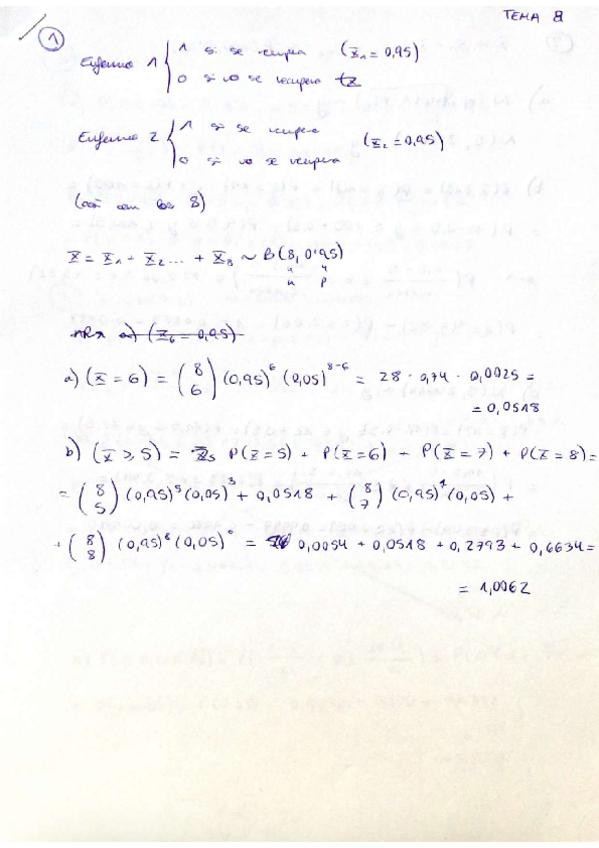 TEMA 8
1
Enfermo 1 { 1 si se recupera (X₁ = 0,95)
0 si no se recupera
Enfermo 2 { 1 si se recupera (X₂ = 0,95)
0 si no se recupera
(así con los 8)
X = X₁ + X₂ ... + X₈ ~ B(8, 0'95)
n p
a) (X₆ = 0,95)
a) (X = 6) = (8 6) (0,95)⁶ (0,05)⁸⁻⁶ = 28 · 0,74 · 0,0025 =
= 0,0518
b) (X ⩾ 5) = P(X = 5) + P(X = 6) + P(X = 7) + P(X = 8) =
= (8 5) (0,95)⁵ (0,05)³ + 0,0518 + (8 7) (0,95)⁷ (0,05) +
+ (8 8) (0,95)⁸ (0,05)⁰ = 0,0054 + 0,0518 + 0,2793 + 0,6634 =
= 1,0062